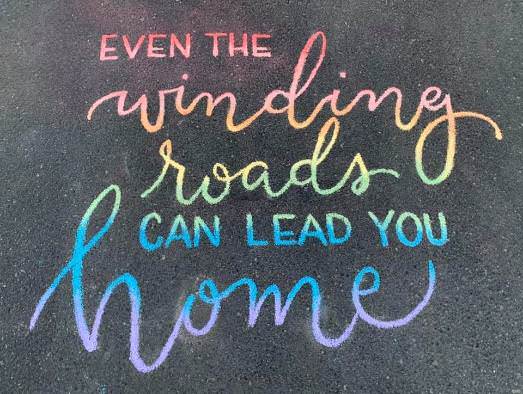 EVEN THE
winding
roads
CAN LEAD YOU
home